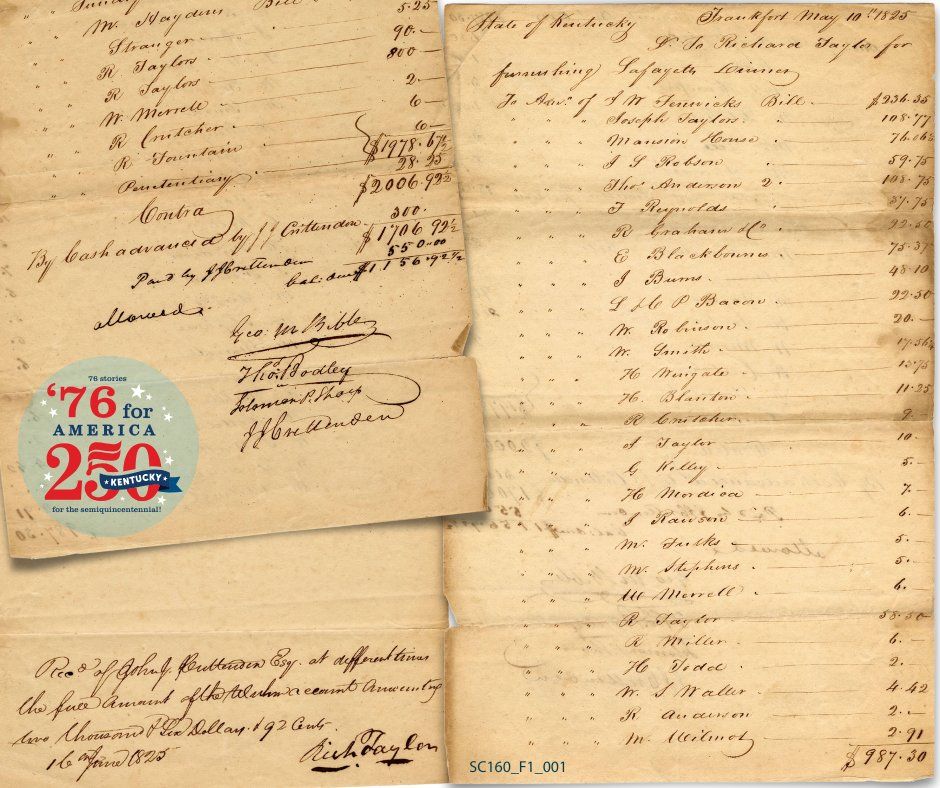 State of Kentucky Frankfort May 10th 1825
Dr To Richard Taylor for
furnishing Lafayette Dinner
To Amt. of J W Fenwicks Bill $236.35
" " " Joseph Taylors " 108.77
" " " Mansion House " 76.06½
" " " J S Robson 59.75
" " " Thos Anderson 2. 108.75
" " " F Reynolds 37.75
" " " R Graham & Co 92.50
" " " E Blackbournes 75.37
" " " J Burns 48.10
" " " L & C P Bacon 22.50
" " " W. Robinson 20.-
" " " W. Smith 17.56¼
" " " H Wingate 13.75
" " " H. Blanton 11.25
" " " R Crutcher 9.-
" " " A Taylor 10.
" " " G Kelley 5.
" " " H Mordica 7.
" " " J Rawson 6.
" " " M. Fulks 5.
" " " M. Stephens 5.
" " " W Merrell 6.
" " " R Taylor 58.50
" " " R Miller 6.-
" " " H Todd 2.
" " " W. S Waller 4.42
" " " R Anderson 2.-
" " " M. Wilmot 2.91
$987.30
" " Bill 5.25
" " M. Haydens 90.-
" " Stranger 800-
" " R Taylors 2.-
" " R Taylors 6-
" " W. Merrell
" " R Crutcher 6-
" " R Fountain $1978.67½
" " Penetentiary 28.25
$2006.92½
Contra
By Cash advanced by J J Crittendon 300.
$1706 92½
Paid by J J Crittenden 550.00
bal. due $1.156.92½
allowed.
Geo. M Bibb
Thos. Bodley
Solomon P. Sharp
J J Crittenden
76 stories
'76 for
AMERICA
250
KENTUCKY
for the semiquincentennial!
Recd of John J. Crittenden Esq. at different times
the full amount of the within account amounting
two thousand & Six Dollars & 92 Cents
16 June 1825
Rich. Taylor
SC160_F1_001